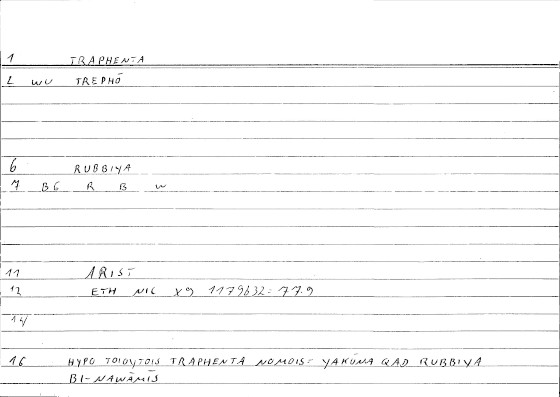 1 TRAPHENTA
2 WU TREPHŌ
6 RUBBIYA
7 BG R B W
11 ARIST
12 ETH NIC X9 1179b32: 77.9
14
16 HYPO TOIOYTOIS TRAPHENTA NOMOIS: YAKŪNA QAD RUBBIYA
BI-NAWĀMĪS